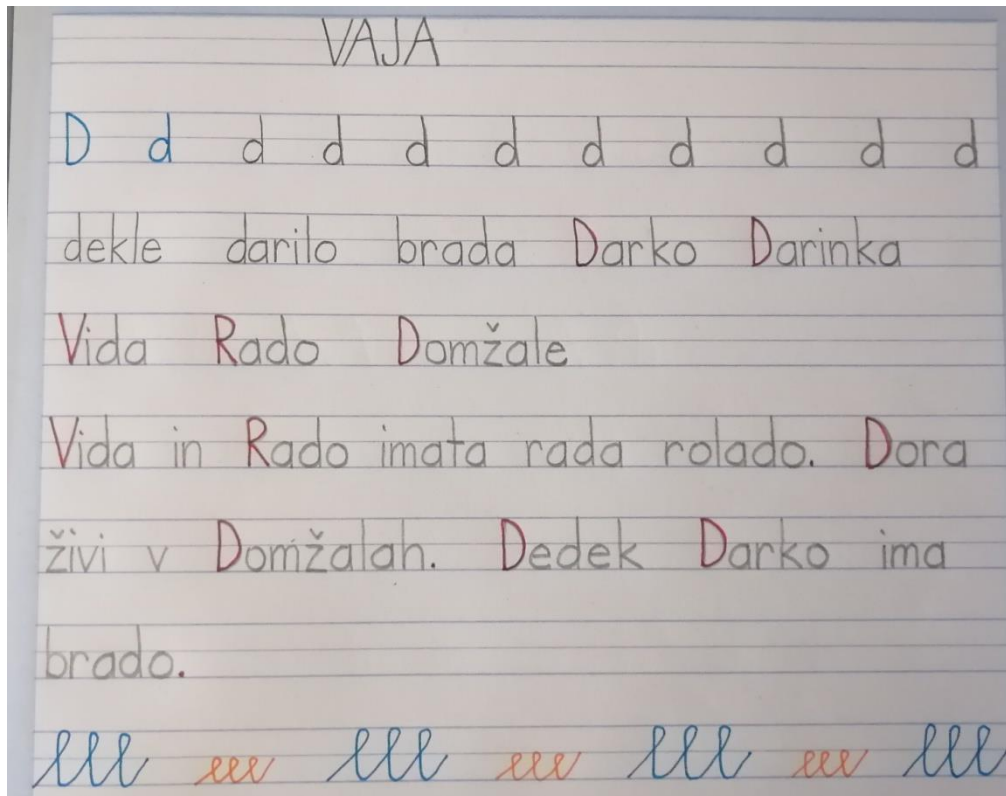 VAJA
D d d d d d d d d d d
dekle darilo brada Darko Darinka
Vida Rado Domžale
Vida in Rado imata rada rolado. Dora
živi v Domžalah. Dedek Darko ima
brado.
lll eee lll eee lll eee lll